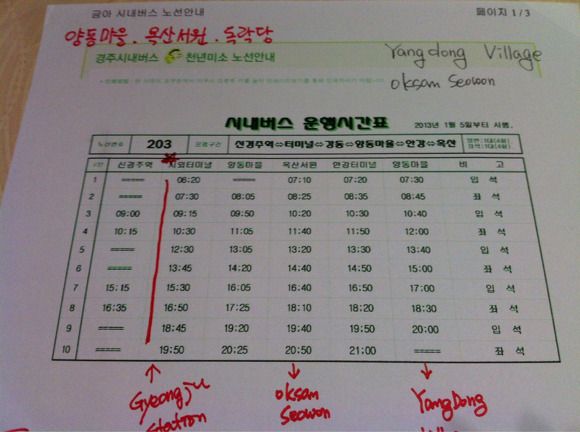 금아 시내버스 노선안내 페이지 1/3
양동마을. 옥산서원. 독락당
경주시내버스 천년미소 노선안내 Yangdong Village
oksam Seowon
시내버스 운행시간표 2013년 1월 5일부터 시행.
노선번호 203 운행구간 신경주역⇔터미널⇔강동⇔양동마을⇔안강⇔옥산
신경주역 시외터미널 양동마을 옥산서원 안강터미널 양동마을 비 고
1 ===== 06:20 ===== 07:10 07:20 07:30 입 석
2 ===== 07:30 08:05 08:25 08:35 08:45 좌 석
3 09:00 09:15 09:50 10:20 10:30 10:40 입 석
4 10:15 10:30 11:05 11:40 11:50 12:00 좌 석
5 ===== 12:30 13:05 13:20 13:30 13:40 입 석
6 ===== 13:45 14:20 14:40 14:50 15:00 좌 석
7 15:15 15:30 16:05 16:40 16:50 17:00 입 석
8 16:35 16:50 17:25 18:10 18:20 18:30 좌 석
9 ===== 18:45 19:20 19:40 19:50 20:00 입 석
10 ===== 19:50 20:25 20:50 21:00 ===== 좌 석
Gyeongju oksam YangDong
station Seowon